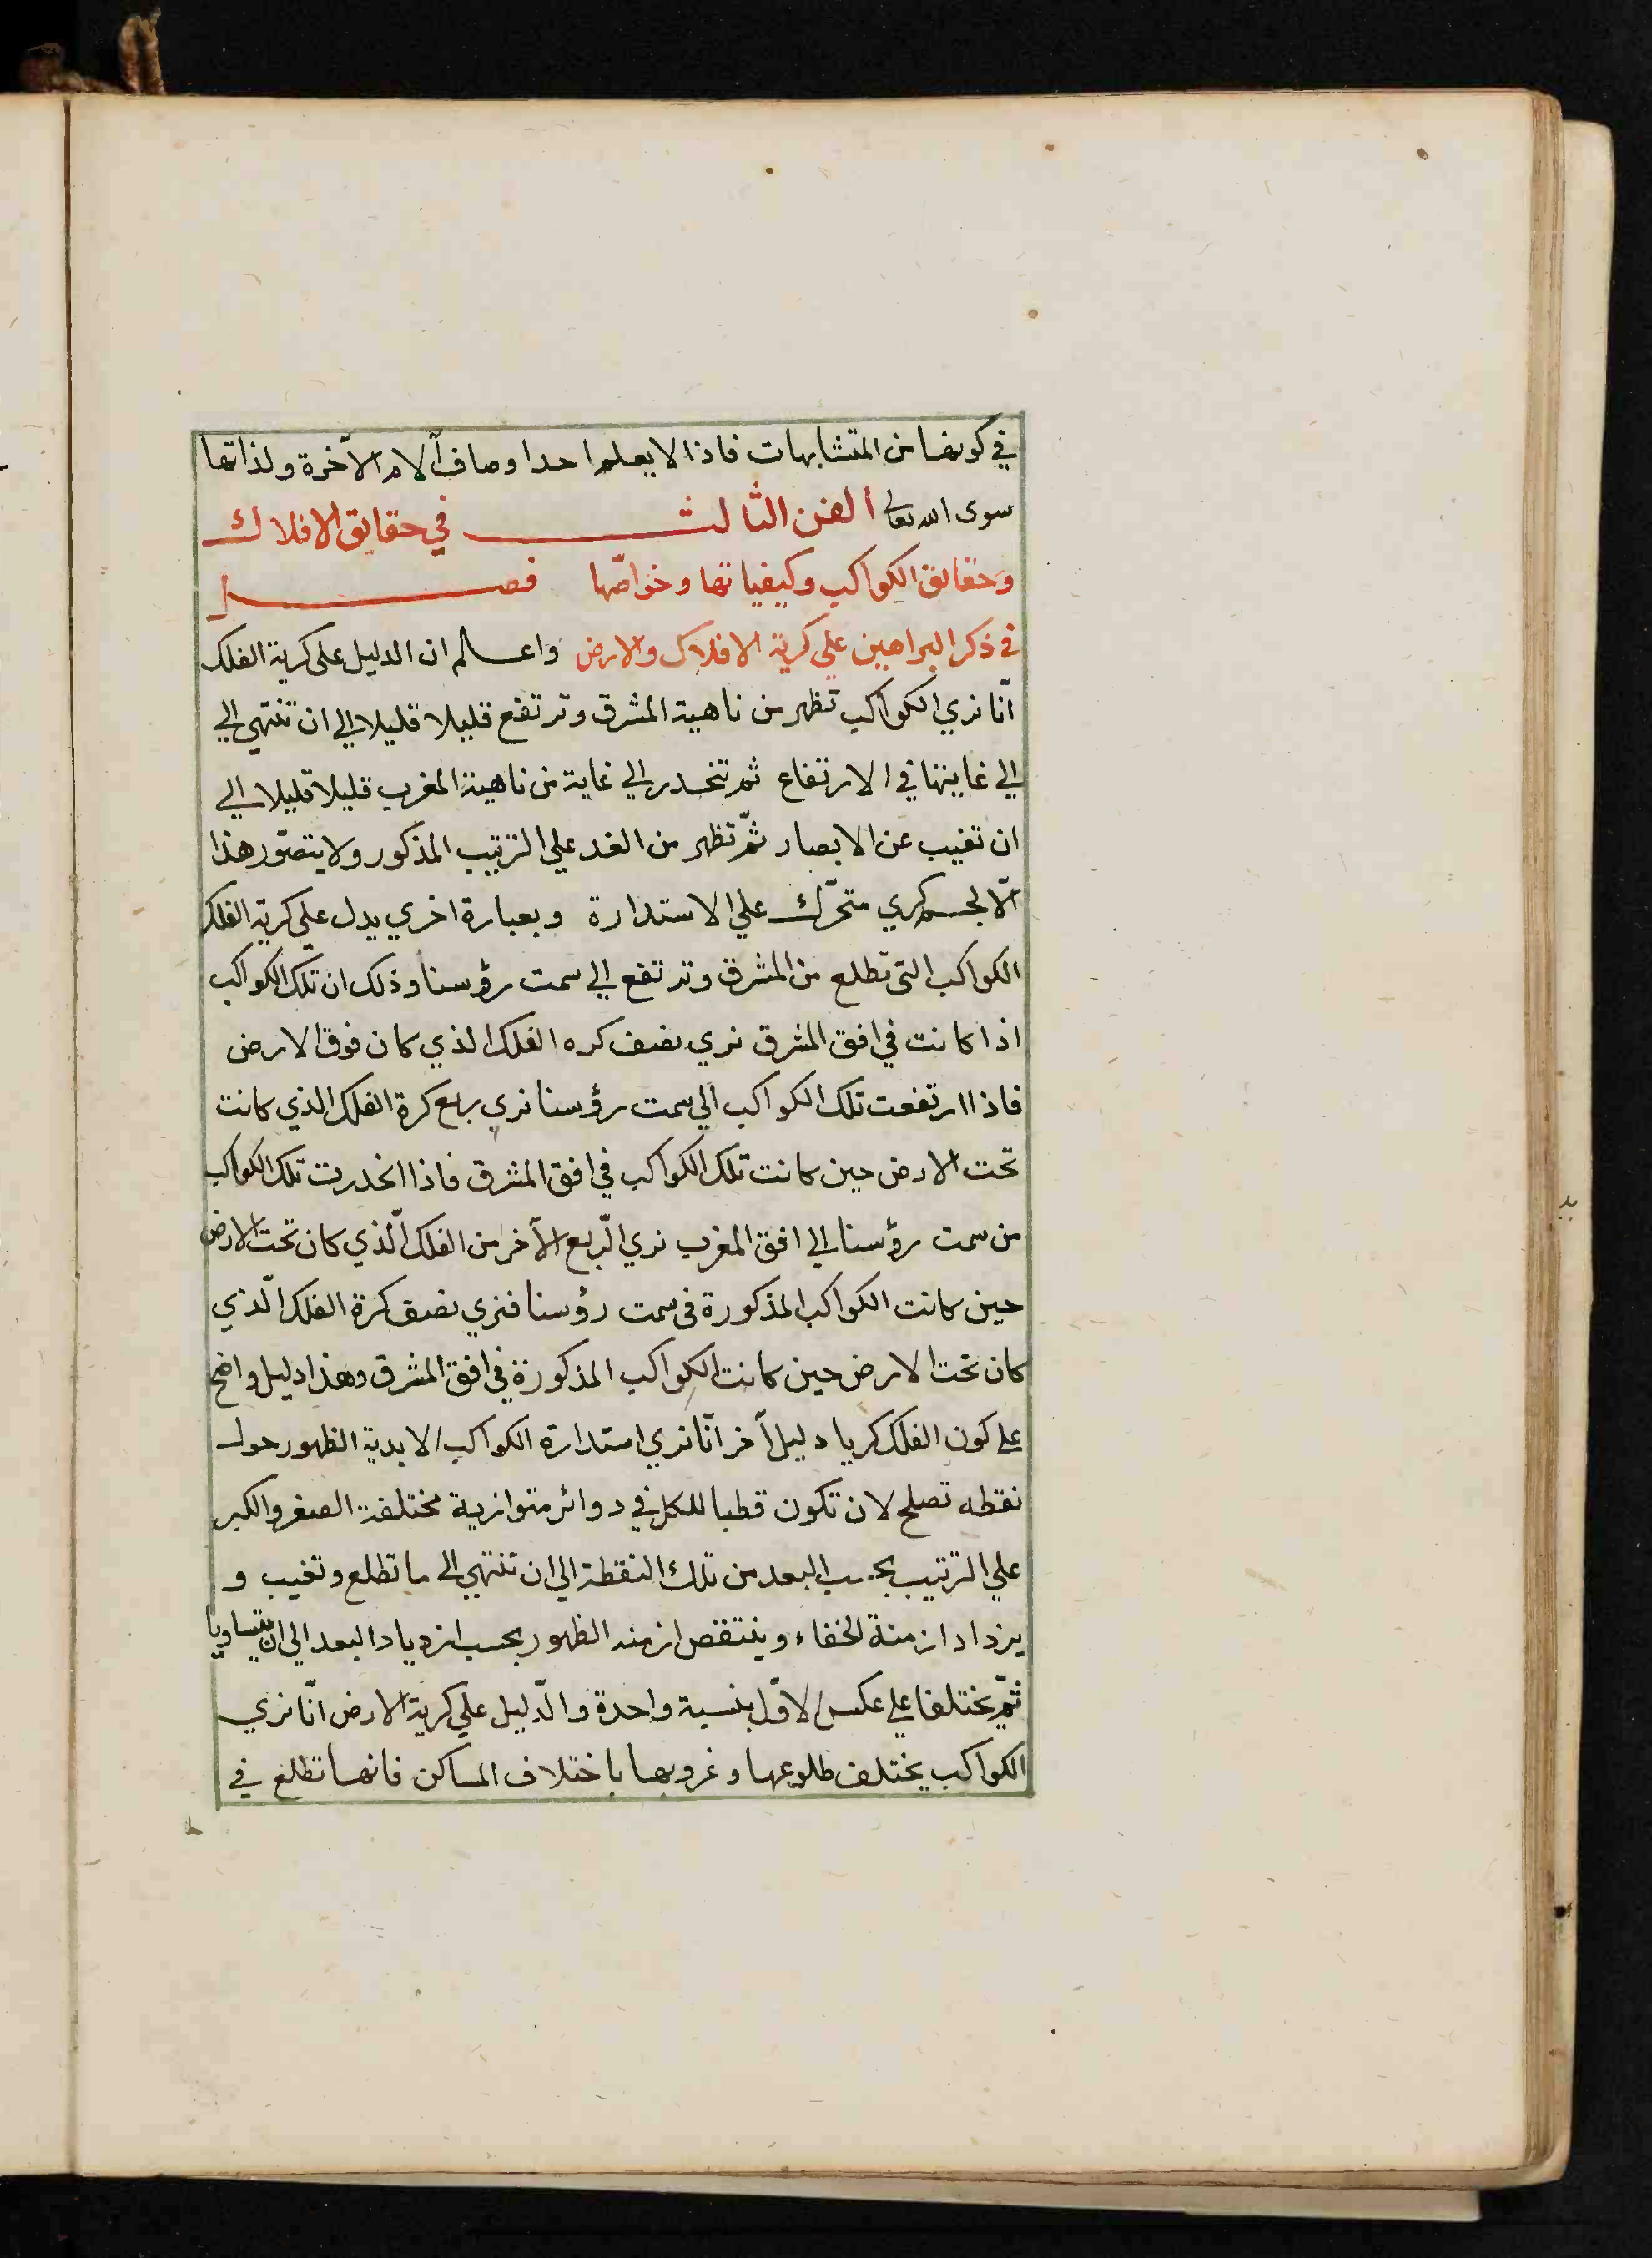 في كونها من المتشابهات فاذا لا يعلم احدا وصاف آلام الآخرة ولذاتها
سوى الله تعالى الفن الثالث في حقايق الافلاك
وحقايق الكواكب وكيفياتها وخواصّها فصل
في ذكر البراهين علي كرية الافلاك والارض واعلم ان الدليل على كرية الفلك
انّا نري الكواكب تظهر من ناهية المشرق وترتفع قليلا قليلا الي ان تنتهي الي
الي غايتها في الارتفاع ثم تنحدر الي غاية من ناهية المغرب قليلا قليلا الي
ان تغيب عن الابصار ثمّ تظهر من الغد علي الترتيب المذكور ولا يتصوّر هذا
الّا لجسم كري متحّرك علي الاستدارة وبعبارة اخري يدل علي كرية الفلك
الكواكب التى تطلع من المشرق وترتفع الي سمت رؤسنا وذلك ان تلك الكواكب
اذا كانت في افق المشرق نري نصف كره الفلك الذي كان فوق الارض
فاذا ارتفعت تلك الكواكب الي سمت رؤسنا نري ربع كرة الفلك الذي كانت
تحت الارض حين كانت تلك الكواكب في افق المشرق فاذا انحدرت تلك الكواكب
من سمت رؤسنا الي افق المغرب نري الّربع الآخر من الفلك الّذي كان تحت الارض
حين كانت الكواكب المذكورة فى سمت رؤسنا فنري نصف كرة الفلك الّذي
كان تحت الارض حين كانت الكواكب المذكورة في افق المشرق وهذا دليل واضح
علي كون الفلك كريا دليل آخر انّا نري استدارة الكواكب الابدية الظهور حول
نقطه تصلح لان تكون قطبا للكل في دوائر متوازية مختلفة الصغر والكبر
علي الترتيب بحسب البعد من تلك النقطة الي ان تنتهي الى ما تطلع وتغيب و
يزداد ازمنة الخفاء وينتقص ازمنه الظهور بحسب ازدياد البعد الي ان يتساويا
ثمّ يختلفا علي عكس الاوّل بنسبة واحدة والدّليل علي كرية الارض انّا نري
الكواكب يختلف طلوعها وغروبها باختلاف المساكن فانها تطلع في